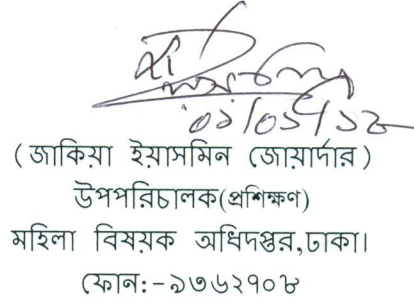 ০১/০১/১২
( জাকিয়া ইয়াসমিন জোয়ার্দার )
উপপরিচালক(প্রশিক্ষণ)
মহিলা বিষয়ক অধিদপ্তর,ঢাকা।
ফোন:-৯৩৬২৭০৮